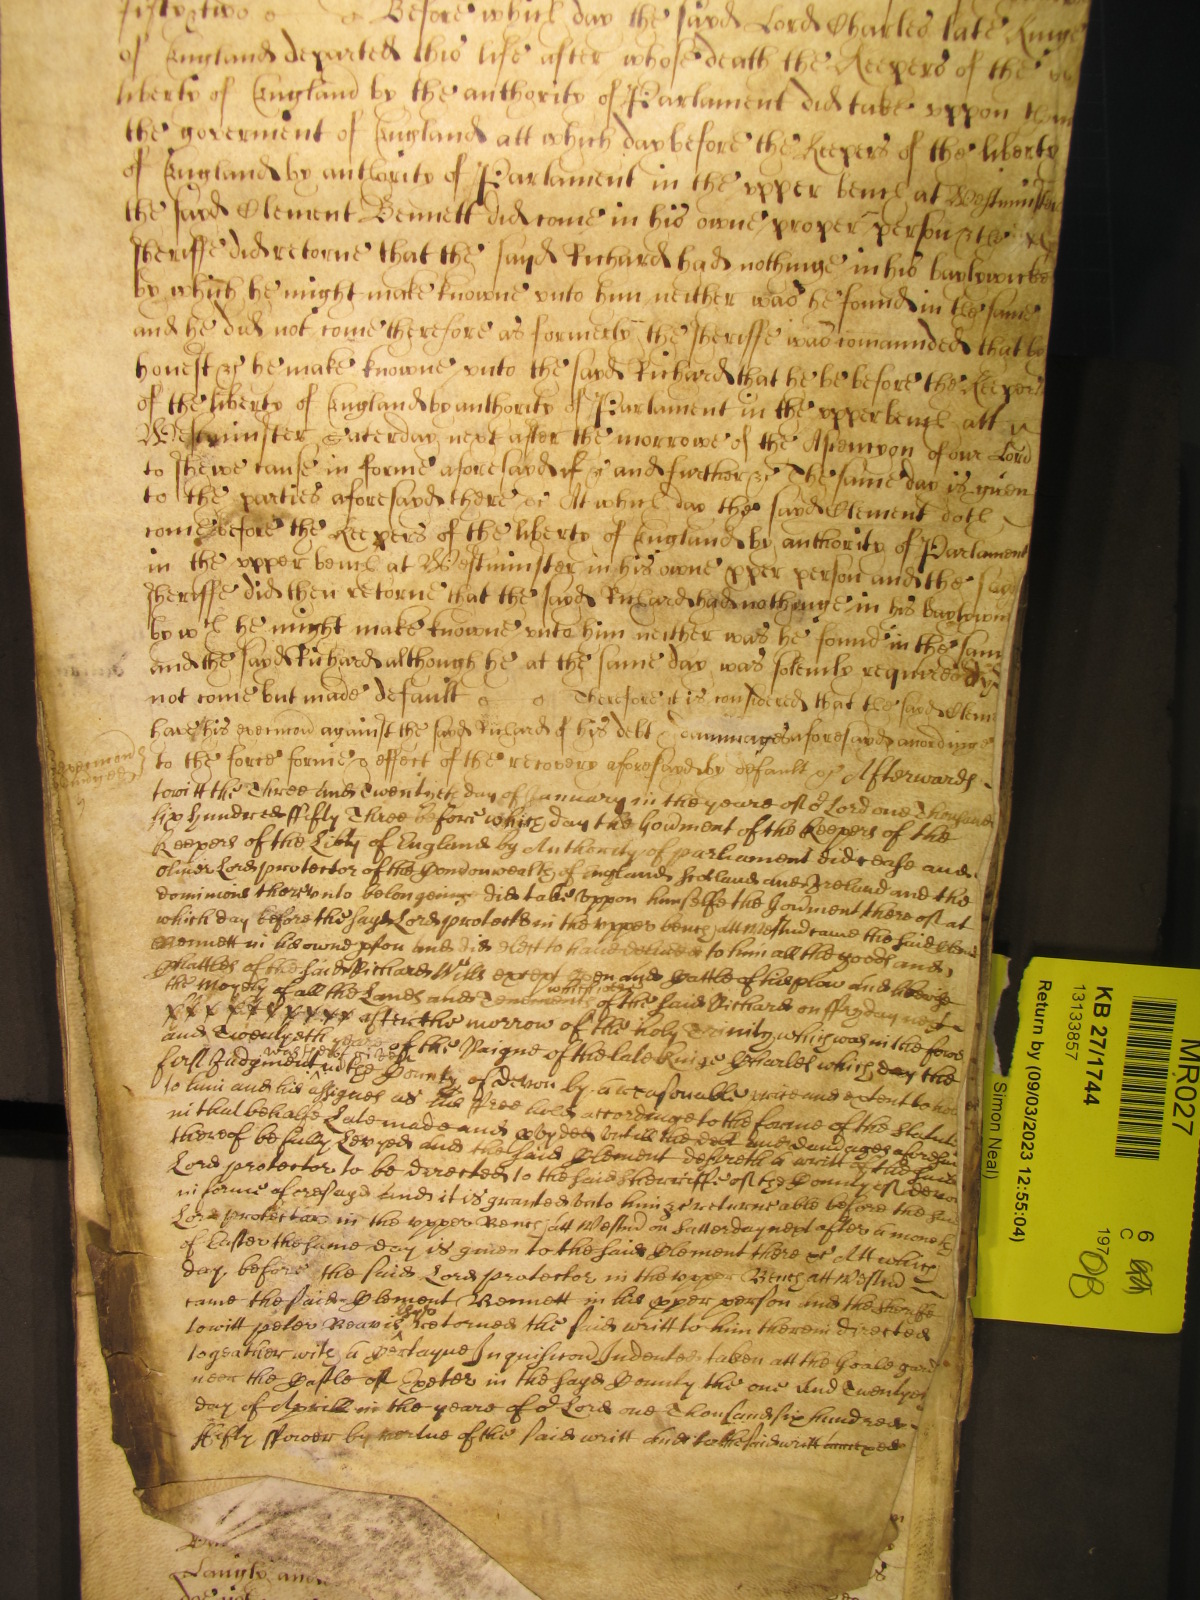 fifty two o o Before which day the sayd Lord Charles late Kinge
of England departed this life after whose death the Keepers of the
liberty of England by the authority of Parlament did take uppon them
the goverment of England att which day before the Keepers of the liberty
of England by authority of Parlament in the upper bench at Westminster
the sayd Clement Bennett did come in his owne proper person &
sheriffe did retorne that the sayd Richard had nothinge in his baylywicke
by which he might make knowne unto him neither was he found in the same
and he did not come therefore as formerly the sheriffe was comaunded that by
honest &c he make knowne unto the sayd Richard that he be before the Keepers
of the liberty of England by authority of Parlament in the upper bench att
Westminster Saterday next after the morrowe of the Asencyon of our Lord
to shewe cause in forme aforesayd if &c and further &c The same day is given
to the parties aforesayd there &c At which day the sayd Clement doth
come before the Keepers of the liberty of England by authority of Parlament
in the upper bench at Westminster in his owne pper person and the
sheriffe did then retorne that the sayd Richard had nothinge in his
by wch he might make knowne unto him neither was he found in the same
and the sayd Richard although he at the same day was solemly required
not come but made default o o Therefore it is considered that the sayd Clem
have his execucon against the sayd Richard of his debt & dammages aforesayd accordinge
to the force forme & effect of the recovery aforesayd by default &c Afterwards
towitt the Three and Twentyeth day of January in the yeare of or Lord one Thousand
six hundred fifty Three before which day the Govment of the Keepers of the
Keepers of the Libty of England by Authority of parliament did cease and
Oliver Lord protector of the Comonwealth of England Scotland and Ireland and the
dominions thereunto belongeinge did take uppon himselfe the Govment thereof at
which day before the sayd Lord protector in the upper bench att Westmr came the said Clem
Bennett in his owne pson and did elect to have delivered to him all the goods and
Chattles of the said Richard Wills except Oxen and Cattle of his plow and likewise
the Moyety of all the Lands and Tenements of the said Richard on ffryday next
which
after the morrow of the holy Trinity which was in the fowr
and Twentyeth yeare of the Raigne of the late Kinge Charles which day the
first Judgment in the County of Devon by a reasonable price and extent to hold
to him and his assignes as his free hold accordinge to the forme of the Statute
in that behalfe Late made and pvyded untill the debt and damages aforesaid
thereof be fully Levyed And the said Clement desireth a writt of the said
Lord protector to be directed to the said sherriffe of the County of Devon
in forme aforesayd And it is granted unto him &c returneable before the said
Lord protector in the upper Bench att Westmr on Satterday next after a moneth
of Easter the same day is given to the said Clement there &c Att which
day before the said Lord protector in the upper Bench att Westmr
came the said Clement Bennett in his pper person and the sheriffe
towitt peter Beavis retorned the said writt to him therein directed
togeather with a certayne Inquisicon Indented taken att the Goale
neer the Castle of Exeter in the sayd County the one And Twentyeth
day of Aprill in the yeare of or Lord one Thousand six hundred
fifty ffower by vertue of the said writt And to the said writt annexed
MR027
KB 27/1744
13133857
Return by (09/03/2023 12:55:04)
Simon Neal)
6
C